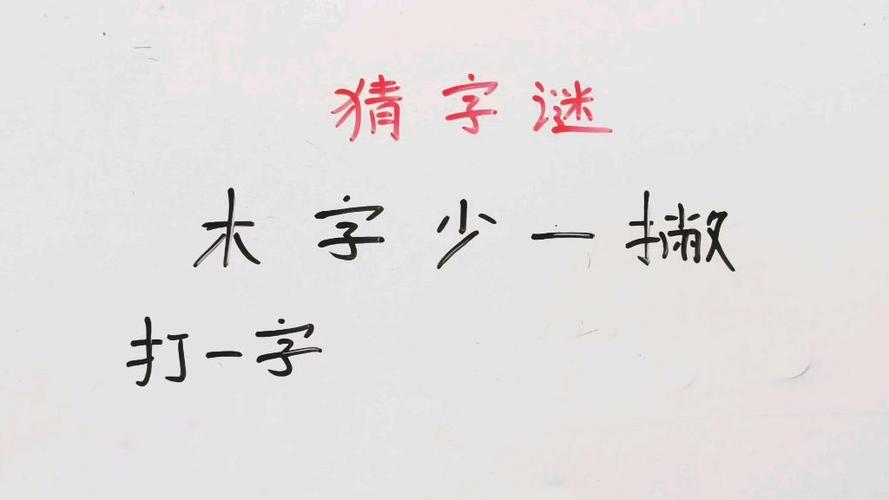 猜字谜
木字少一撇
打一字